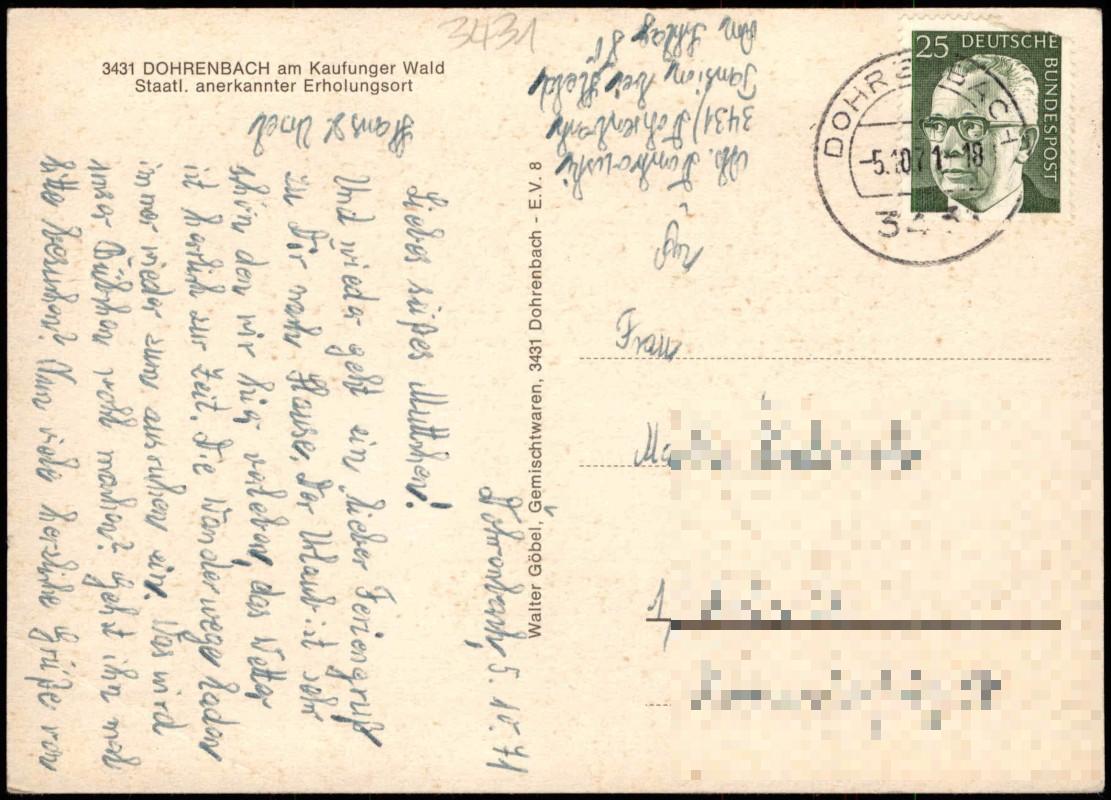 3431 DOHRENBACH am Kaufunger Wald
Staatl. anerkannter Erholungsort
3431
25 DEUTSCHE
BUNDESPOST
DOHRENBACH
-5.10.71-18
3431
Walter Göbel, Gemischtwaren, 3431 Dohrenbach - E.V. 8
Dohrenbach, 5. 10. 71
Liebes süßes Muttchen!
Und wieder geht ein lieber Feriengruß
zu Dir nach Hause. Der Urlaub ist sehr
schön den wir hier verleben, das Wetter
ist herrlich zur Zeit. Die Wanderwege laden
immer wieder zum ausruhen ein. Was wird
unser Bübchen wohl machen? Geht ihn mal
bitte besuchen? Nun viele herzliche Grüße von
Hans &
Abs.
3431) Dohrenbach
Pension bei Held
Am
Frau